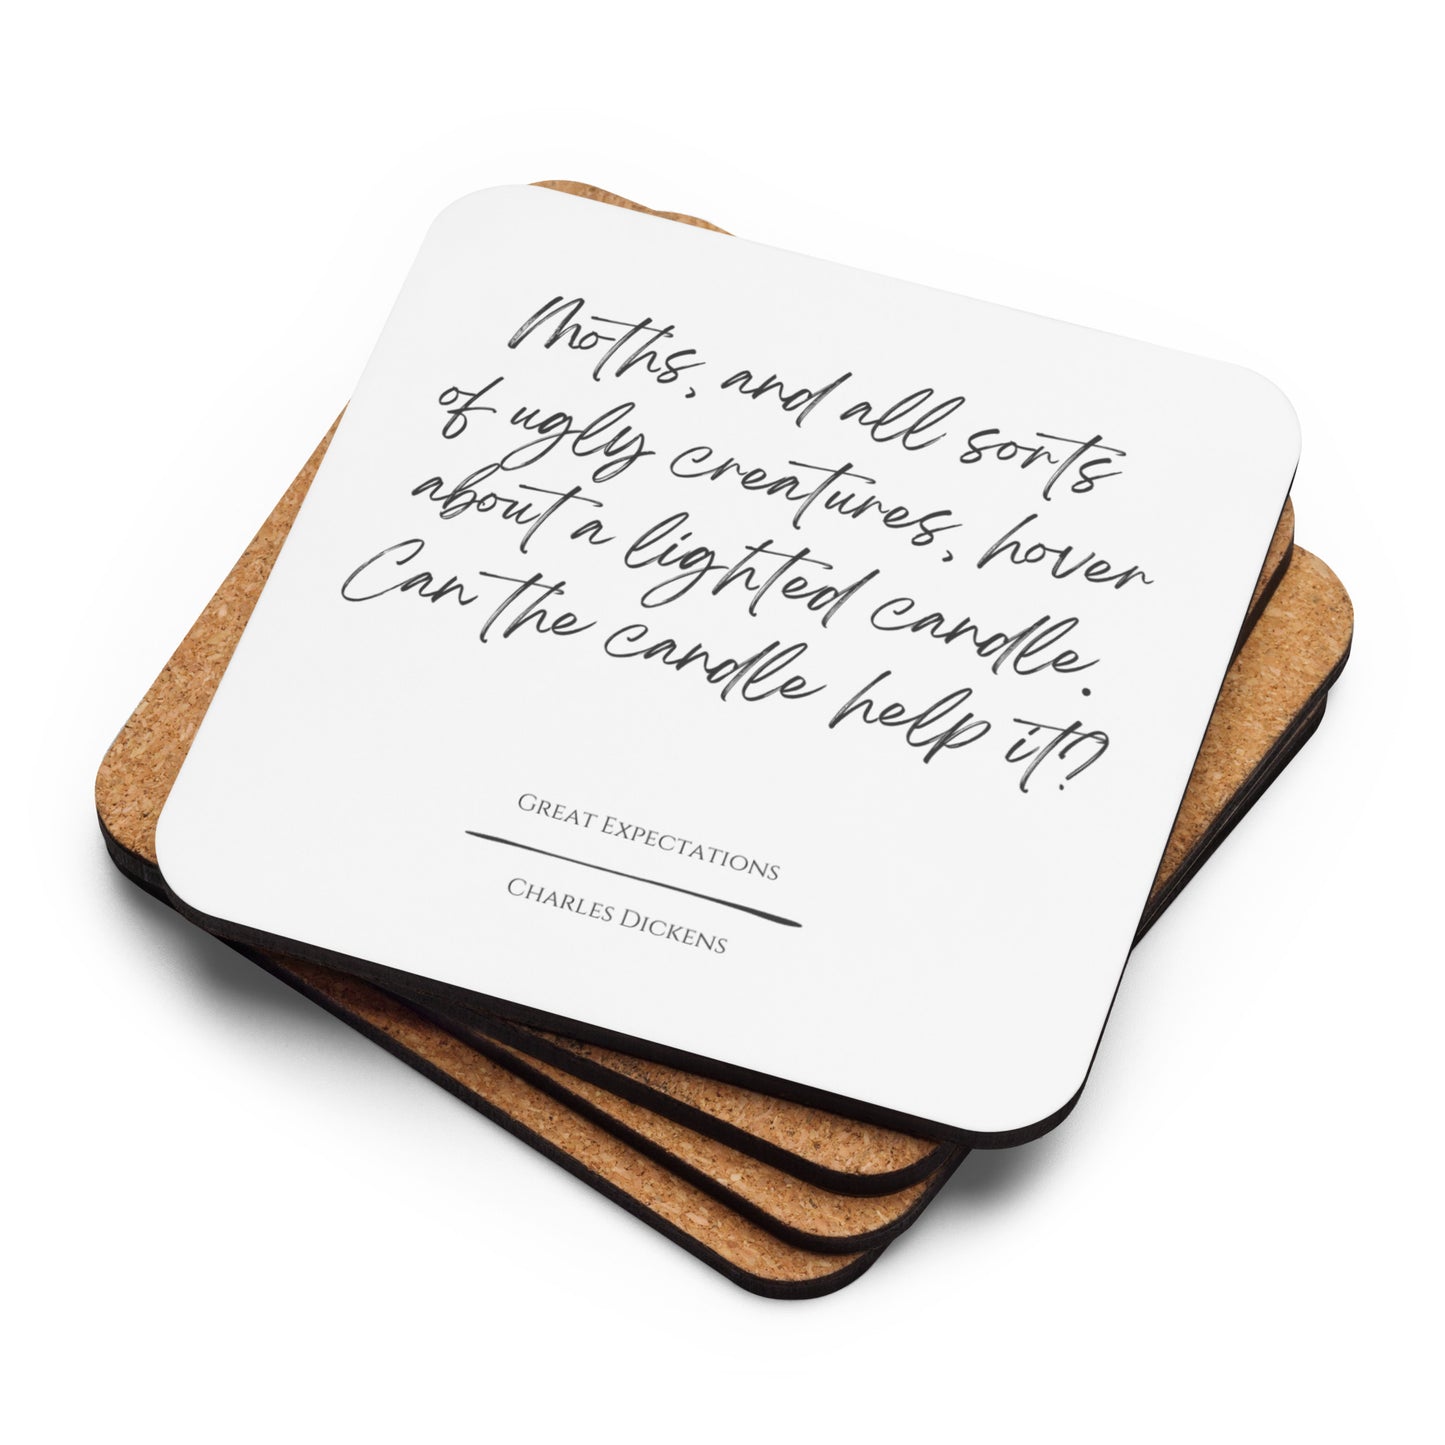 Moths, and all sorts
of ugly creatures, hover
about a lighted candle.
Can the candle help it?
Great Expectations
Charles Dickens